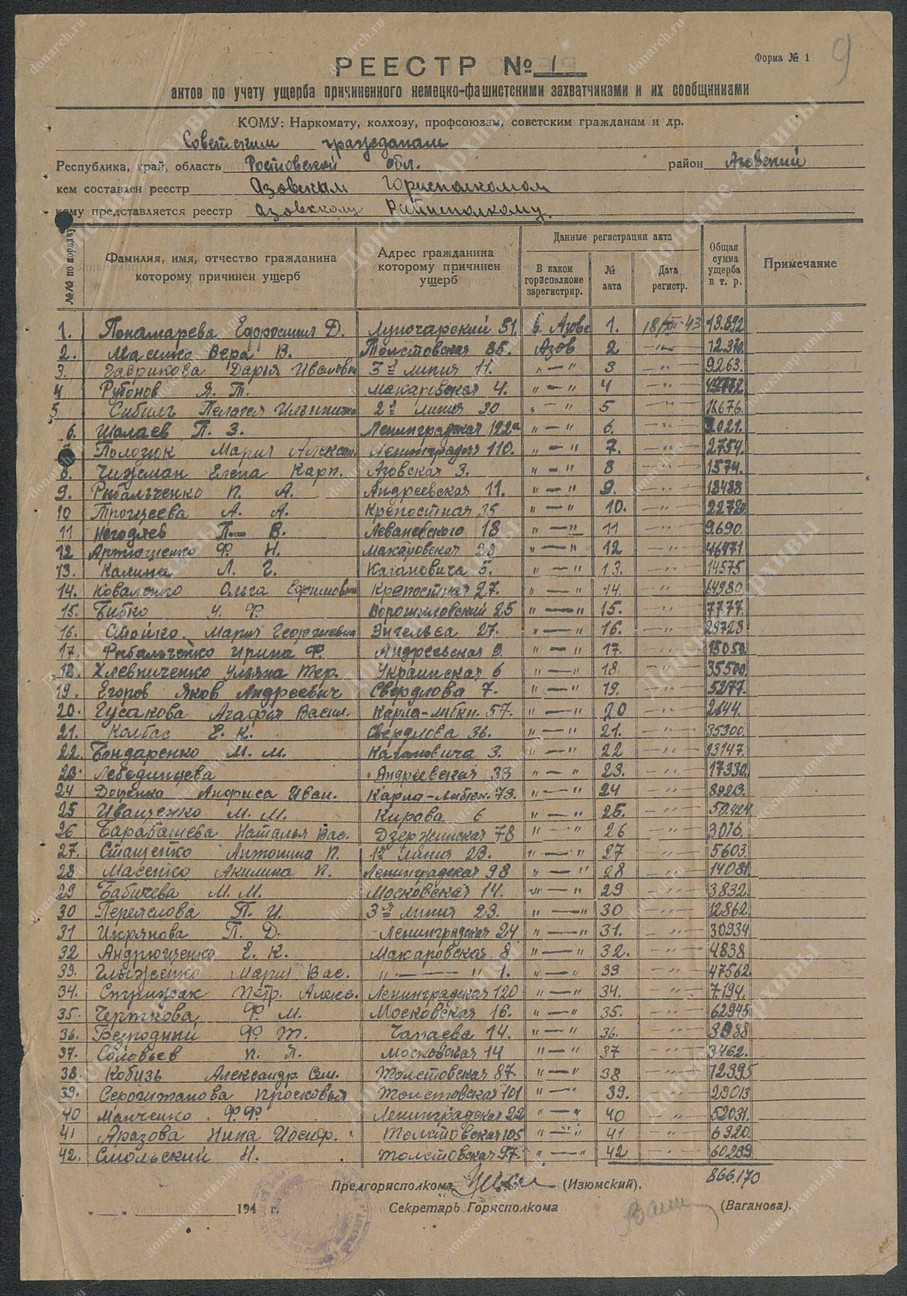 Форма № 1
9
РЕЕСТР № 1
актов по учету ущерба причиненного немецко-фашистскими захватчиками и их сообщниками
КОМУ: Наркомату, колхозу, профсоюзам, советским гражданам и др.
Советским гражданам
Республика, край, область Ростовской обл. район Азовский
кем составлен реестр Азовским Горисполкомом
кому представляется реестр Азовскому Райисполкому.
№№ по порядку
Фамилия, имя, отчество гражданина которому причинен ущерб
Адрес гражданина которому причинен ущерб
Данные регистрации акта
В каком горисполкоме зарегистрир.
№ акта
Дата регистр.
Общая сумма ущерба в т. р.
Примечание
1. Понамарева Д. Луначарский 51. г. Азове 1. 18/XII-43 18.892
2. Вера В. Толстовская 85. Азов 2 -"-
3. Гаврикова Дария Ивановн 3я линия 11. "-" 3 -"- 9263.
4 Я. Т. Макаровская 4. "-" 4 -"-
5 Пелагея 2я линия 30 "-" 5 -"- 18676.
6. Шалаев П. З. Ленинградская 122а "-" 6. -"- 2021.
Полозюк Мария Ленинградская 110. "-" 7. -"- 2754.
8. Елена Карп. Азовская 3. "-" 8 -"- 1574.
9. Рыбальченко П. А. Андреевская 11. "-" 9. -"- 18488
10 А. А. Крепостная 35 "-" 10. -"-
11 Негодяев П. В. Леваневского 18 "-" 11 -"- 9.690.
12 Артющенко Ф. Н. Макаровская 28 "-" 12 -"- 46471
13. Калина Л. Г. Кагановича 5. "-" 13. -"- 14575
14. Коваленко Ольга Ефимовна Крепостная 27. "-" 14. -"- 64980
15. Бибко Ф. Ворошиловский 25 "-" 15. -"- 7777
16. Стойко Мария Георгиевна Энгельса 27. "-" 16. -"- 29728
17. Рыбальченко Ирина Ф. Андреевская 9. "-" 17. -"-
18. Хлевниченко Ульяна Тер. Украинская 6 "-" 18. -"- 35500
19. Егоров Яков Андреевич Свердлова 7. "-" 19. -"- 5277
20. Гусакова Агафия Васил. Карла-Либкн. 57. "-" 20 -"- 2644.
21. Колбас Е. К. Свердлова 36. "-" 21. -"- 35300.
22. Бондаренко М. М. Кагановича 3. "-" 22 -"- 13147.
23. Лебединцева Андреевская 33 "-" 23. -"- 17330.
24 Доценко Иван. Карла-Либкн. 73. "-" 24 -"-
25 Иванченко М. М. Кирова 6 "-" 25. -"- 50.424
26 Барабашева Наталья Вас. Дзержинская 78 "-" 26 -"- 3016.
27. Стаценко Антонина П. 1я линия 23. "-" 27 -"- 5603.
28 Масенко Акилина П. Ленинградская 98 "-" 28 -"- 14081.
29 Бабичева М. М. Московская 14. "-" 29 -"- 3832.
30 Переяслова П. И. 3я линия 23. "-" 30 -"- 12862.
31 Икрянова П. Д. Ленинградская 24 "-" 31. -"- 30934
32 Андрющенко Е. К. Макаровская 8 "-" 32. -"- 4838
33. Мария Вас. "-" 1. "-" 33 -"- 47562.
34. Петр. Алекс. Ленинградская 120 "-" 34. -"- 7.194.
35. Черткова Ф М. Московская 16. "-" 35. -"- 62945
36. Безродный Ф Т. Чапаева 14. "-" 36. -"-
37. Соловьев П. Я. Московская 14 "-" 37 -"- 3462.
38. Кобизь Александр Сем. Толстовская 87 "-" 38 -"- 72395
39. Прасковья Толстовская 101 "-" 39. -"- 29013
40 Манченко Ф.Ф. Ленинградская 22 "-" 40 -"- 52031.
41 Арапова Нина Иосиф. Толстовская 105 "-" 41 -"- 6320.
42. Смольский Н. Толстовская 97. "-" 42 -"- 60289
866.170
Предгорисполкома (Изюмский).
" " 194 г. Секретарь Горисполкома (Ваганова).